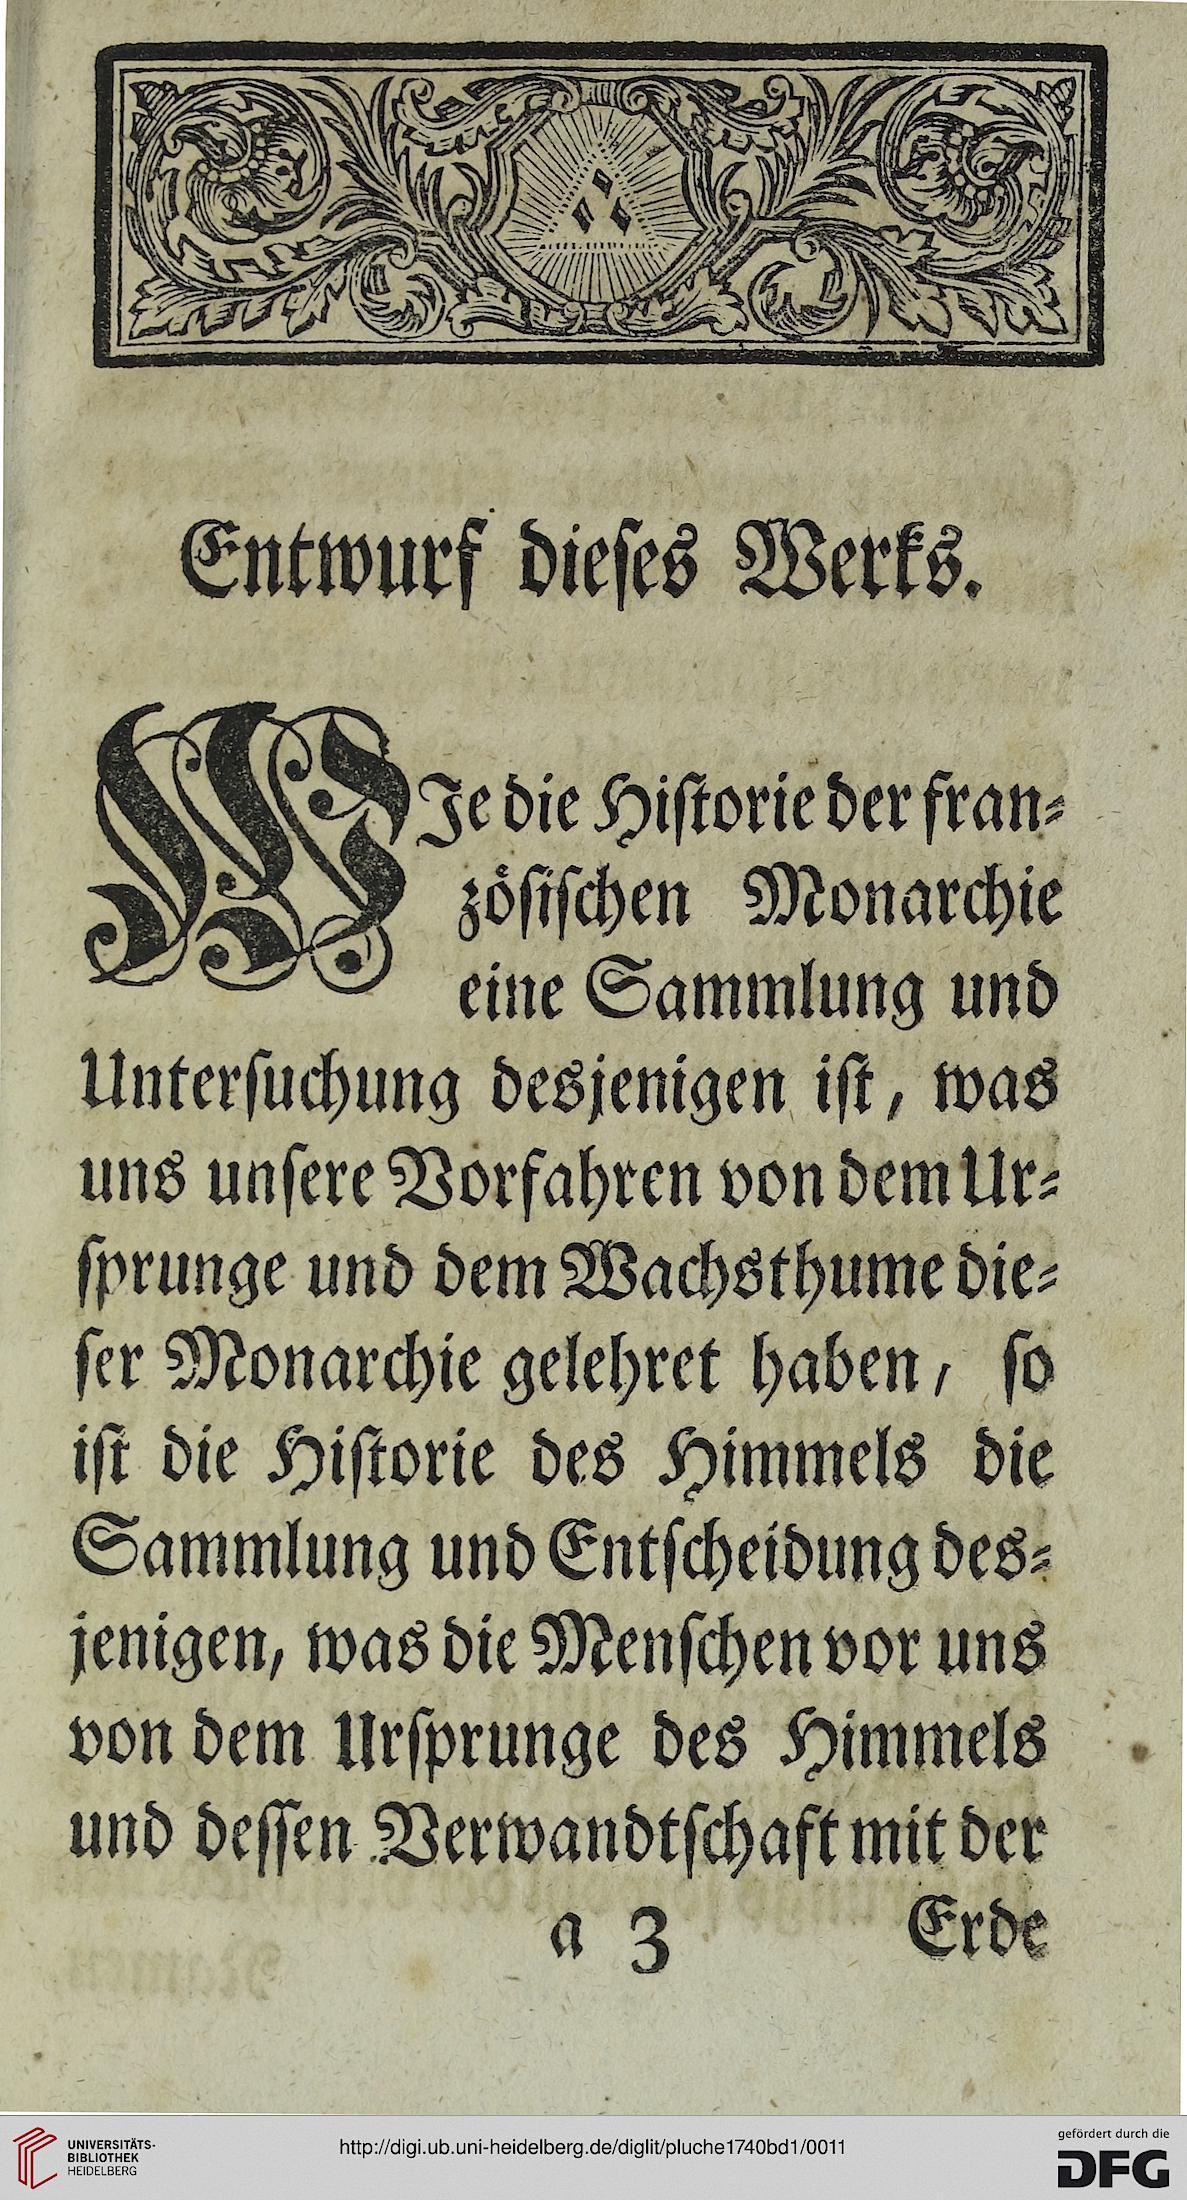 Entwurf dieses Werks.
WJe die Historie der fran⸗
zösischen Monarchie
eine Sammlung und
Untersuchung desjenigen ist, was
uns unsere Vorfahren von dem Ur⸗
sprunge und dem Wachsthume die⸗
ser Monarchie gelehret haben, so
ist die Historie des Himmels die
Sammlung und Entscheidung des⸗
jenigen, was die Menschen vor uns
von dem Ursprunge des Himmels
und dessen Verwandtschaft mit der
a 3 Erde
UNIVERSITÄTS-
BIBLIOTHEK
HEIDELBERG
http://digi.ub.uni-heidelberg.de/diglit/pluche1740bd1/0011
gefördert durch die
DFG